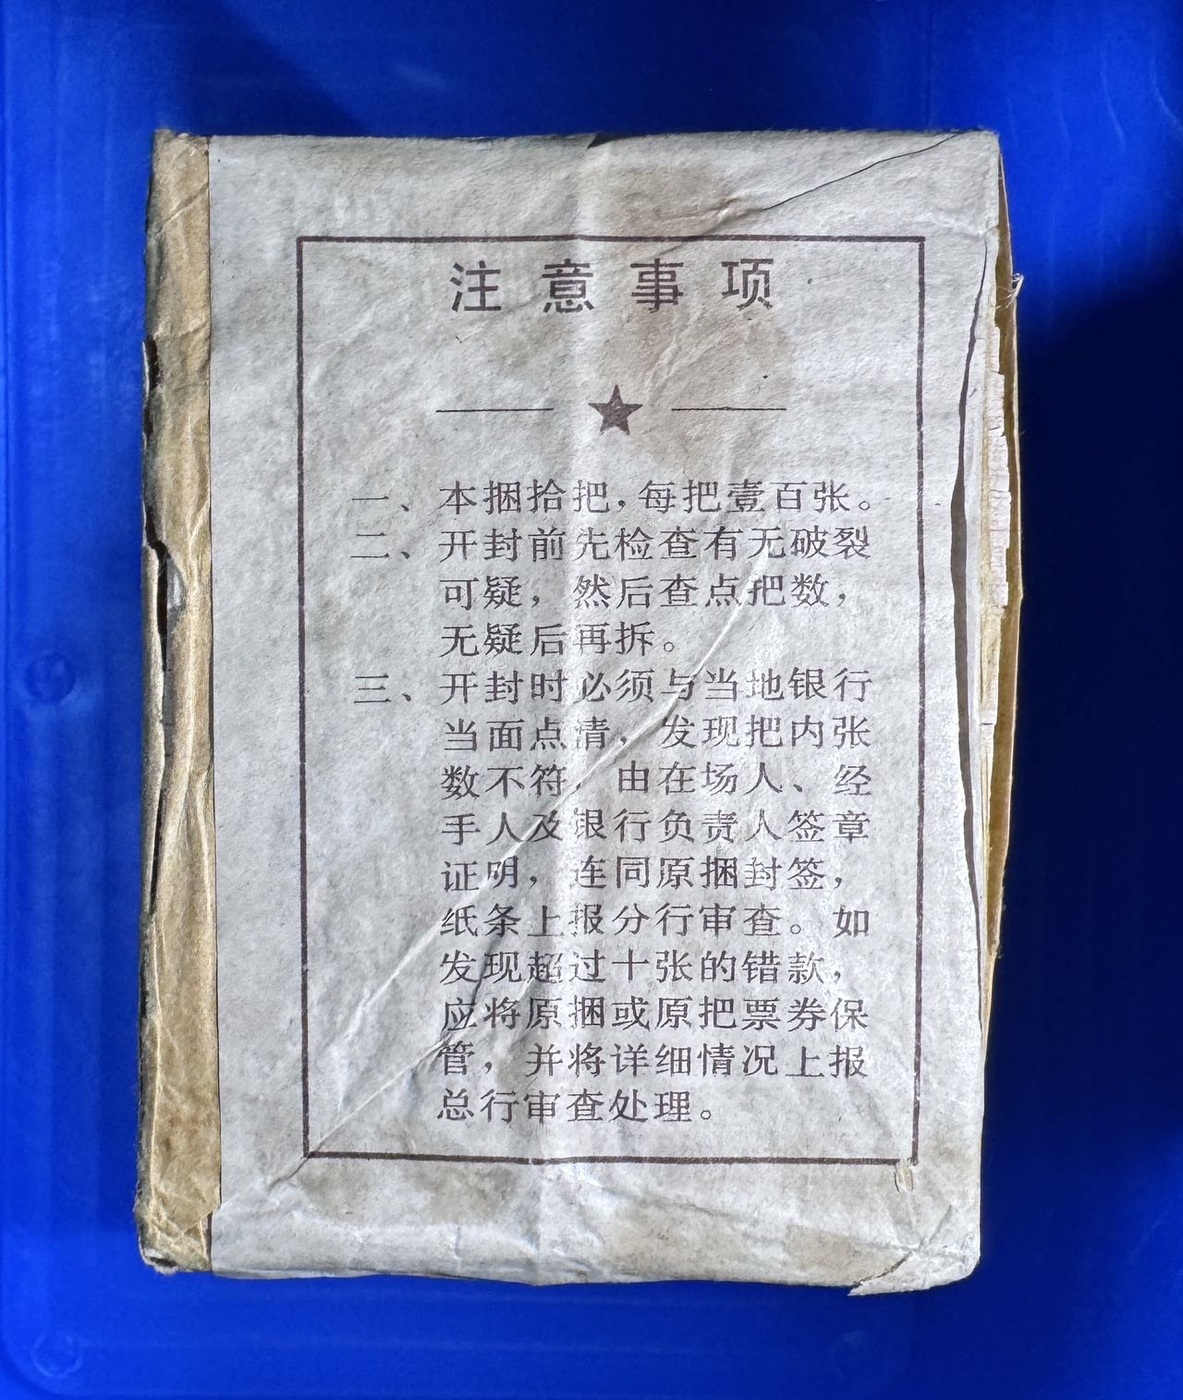 注意事项
一、本捆拾把，每把壹百张。
二、开封前先检查有无破裂
可疑，然后查点把数，
无疑后再拆。
三、开封时必须与当地银行
当面点清，发现把内张
数不符，由在场人、经
手人及银行负责人签章
证明，连同原捆封签，
纸条上报分行审查。如
发现超过十张的错款，
应将原捆或原把票券保
管，并将详细情况上报
总行审查处理。